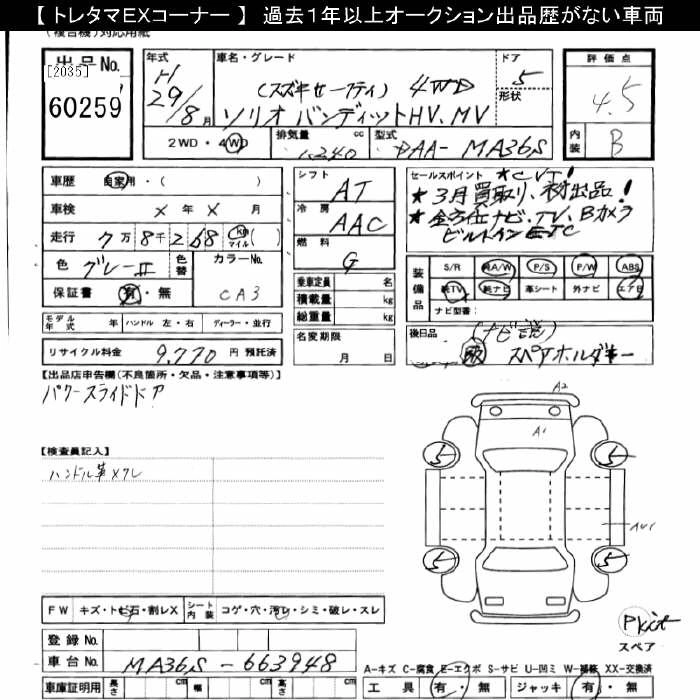 【 トレタマEXコーナー 】 過去1年以上オークション出品歴がない車両
(複合機)対応用紙
出 品 No.
[2035]
60259
年式
H
29/8月
車名・グレード
(スズキセーフティ) 4WD
ソリオ バンディットHV.MV
ドア
5
形状
評価点
4.5
内装
B
2WD・4WD
排気量 cc
1,240
型式
DAA- MA36S
車歴 自家用・( )
車検 × 年 × 月
走行 7万8千268 km マイル( )
色 グレーII
色替
カラーNo.
CA3
保証書 有・無
モデル年式 年 ハンドル 左・右 ディーラー・並行
リサイクル料金 9,770 円 預託済
シフト
AT
冷房
AAC
燃料
G
乗車定員 名
積載量 kg
総重量 kg
名変期限
月 日
セールスポイント ★CVT!
★3月買取り、初出品!
★全方位ナビ、TV、Bカメラ
ビルトインETC
装備品
S/R A/W P/S P/W ABS
純TV 純ナビ 革シート 外ナビ エアB
ナビ型番:
後日品
スペアホルダキー
【出品店申告欄(不良箇所・欠品・注意事項等)】
パワースライドドア
【検査員記入】
ハンドル革スレ
A2
A1
5
5
5
5
FW キズ・トビ石・割レX
シート内装 コゲ・穴・汚レ・シミ・破レ・スレ
Pkit
スペア
登録 No.
車台 No. MA36S-663948
A-キズ C-腐食 E-エクボ S-サビ U-凹ミ W-補修 XX-交換済
車庫証明用 長さ cm 幅 cm 高さ cm
工具 有・無 ジャッキ 有・無